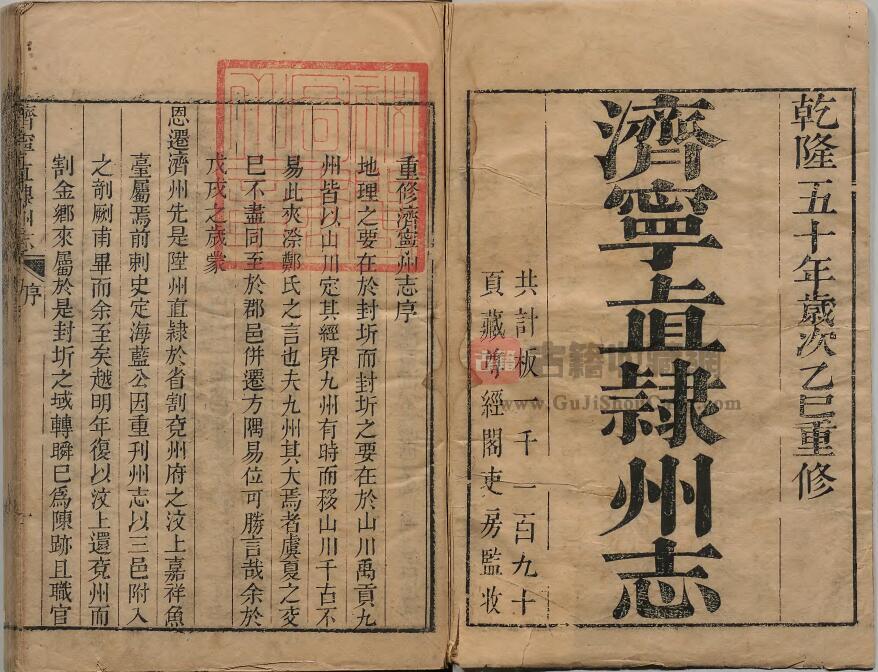 乾隆五十年歲次乙巳重修
濟寧直隸州志
共計板一千一百九十
頁藏尊經閣吏房監收
重修濟寧州志序
地理之要在於封圻而封圻之要在於山川禹貢九
州皆以山川定其經界九州有時而移山川千古不
易此夾漈鄭氏之言也夫九州其大焉者虞夏之交
巳不盡同至於郡邑併遷方隅易位可勝言哉余於
戊戌之歲蒙
恩遷濟州先是陞州直隸於省割兗州府之汶上嘉祥魚
臺屬焉前刺史定海藍公因重刊州志以三邑附入
之剞劂甫畢而余至矣越明年復以汶上還兗州而
割金鄉來屬於是封圻之域轉瞬巳為陳跡且職官
濟寧直隸州志
序
一
古籍
古籍收藏網
www.GuJiShouCang.com